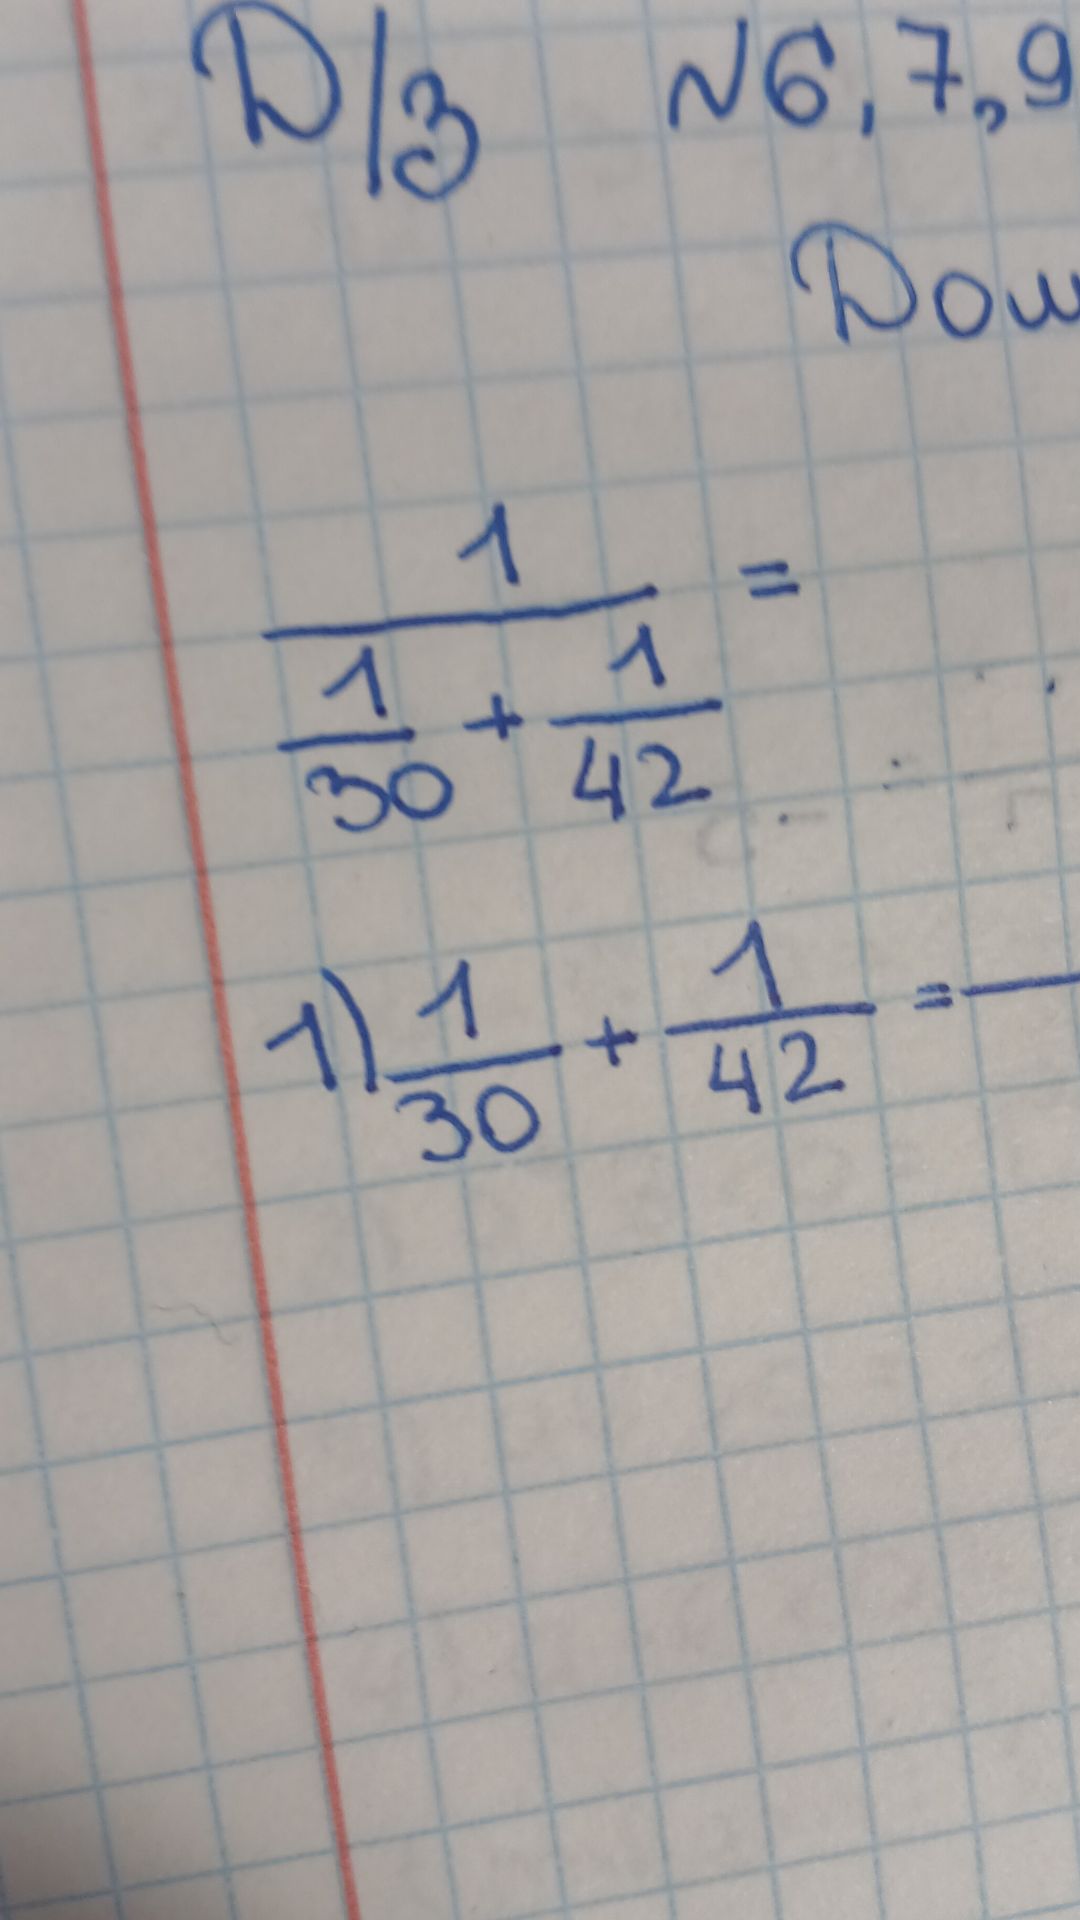 D/з №6, 7, 9
Дом
1
=
1/30 + 1/42
1) 1/30 + 1/42 =